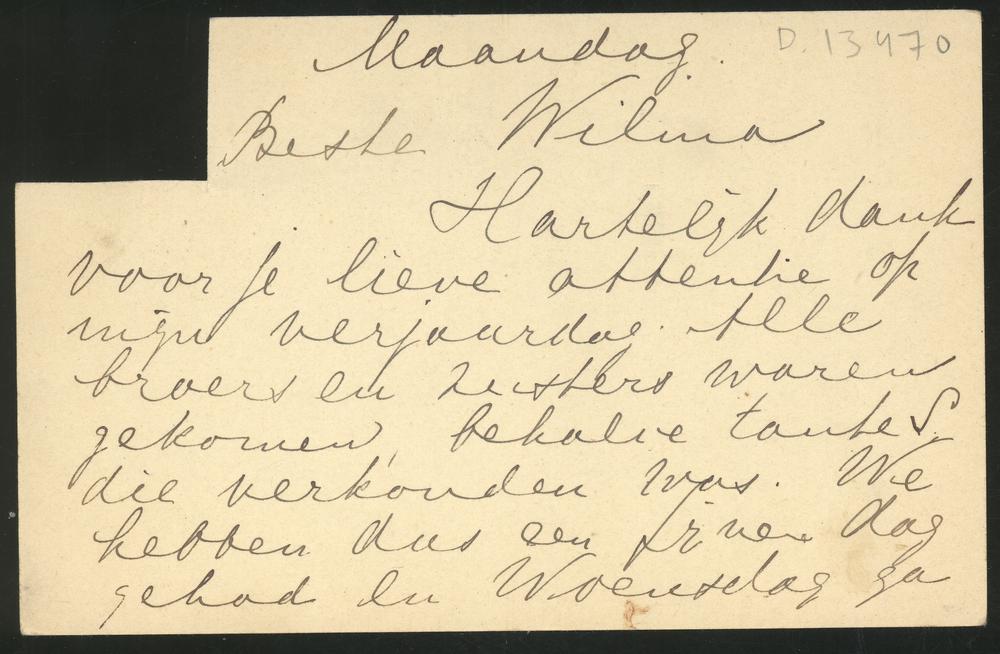 D. 13470
Maandag.
Beste Wilma
Hartelijk dank
voor je lieve attentie op
mijn verjaardag. Alle
broers en zusters waren
gekomen, behalve tante S.
die verkouden was. We
hebben dus een fijnen dag
gehad En Woensdag ga